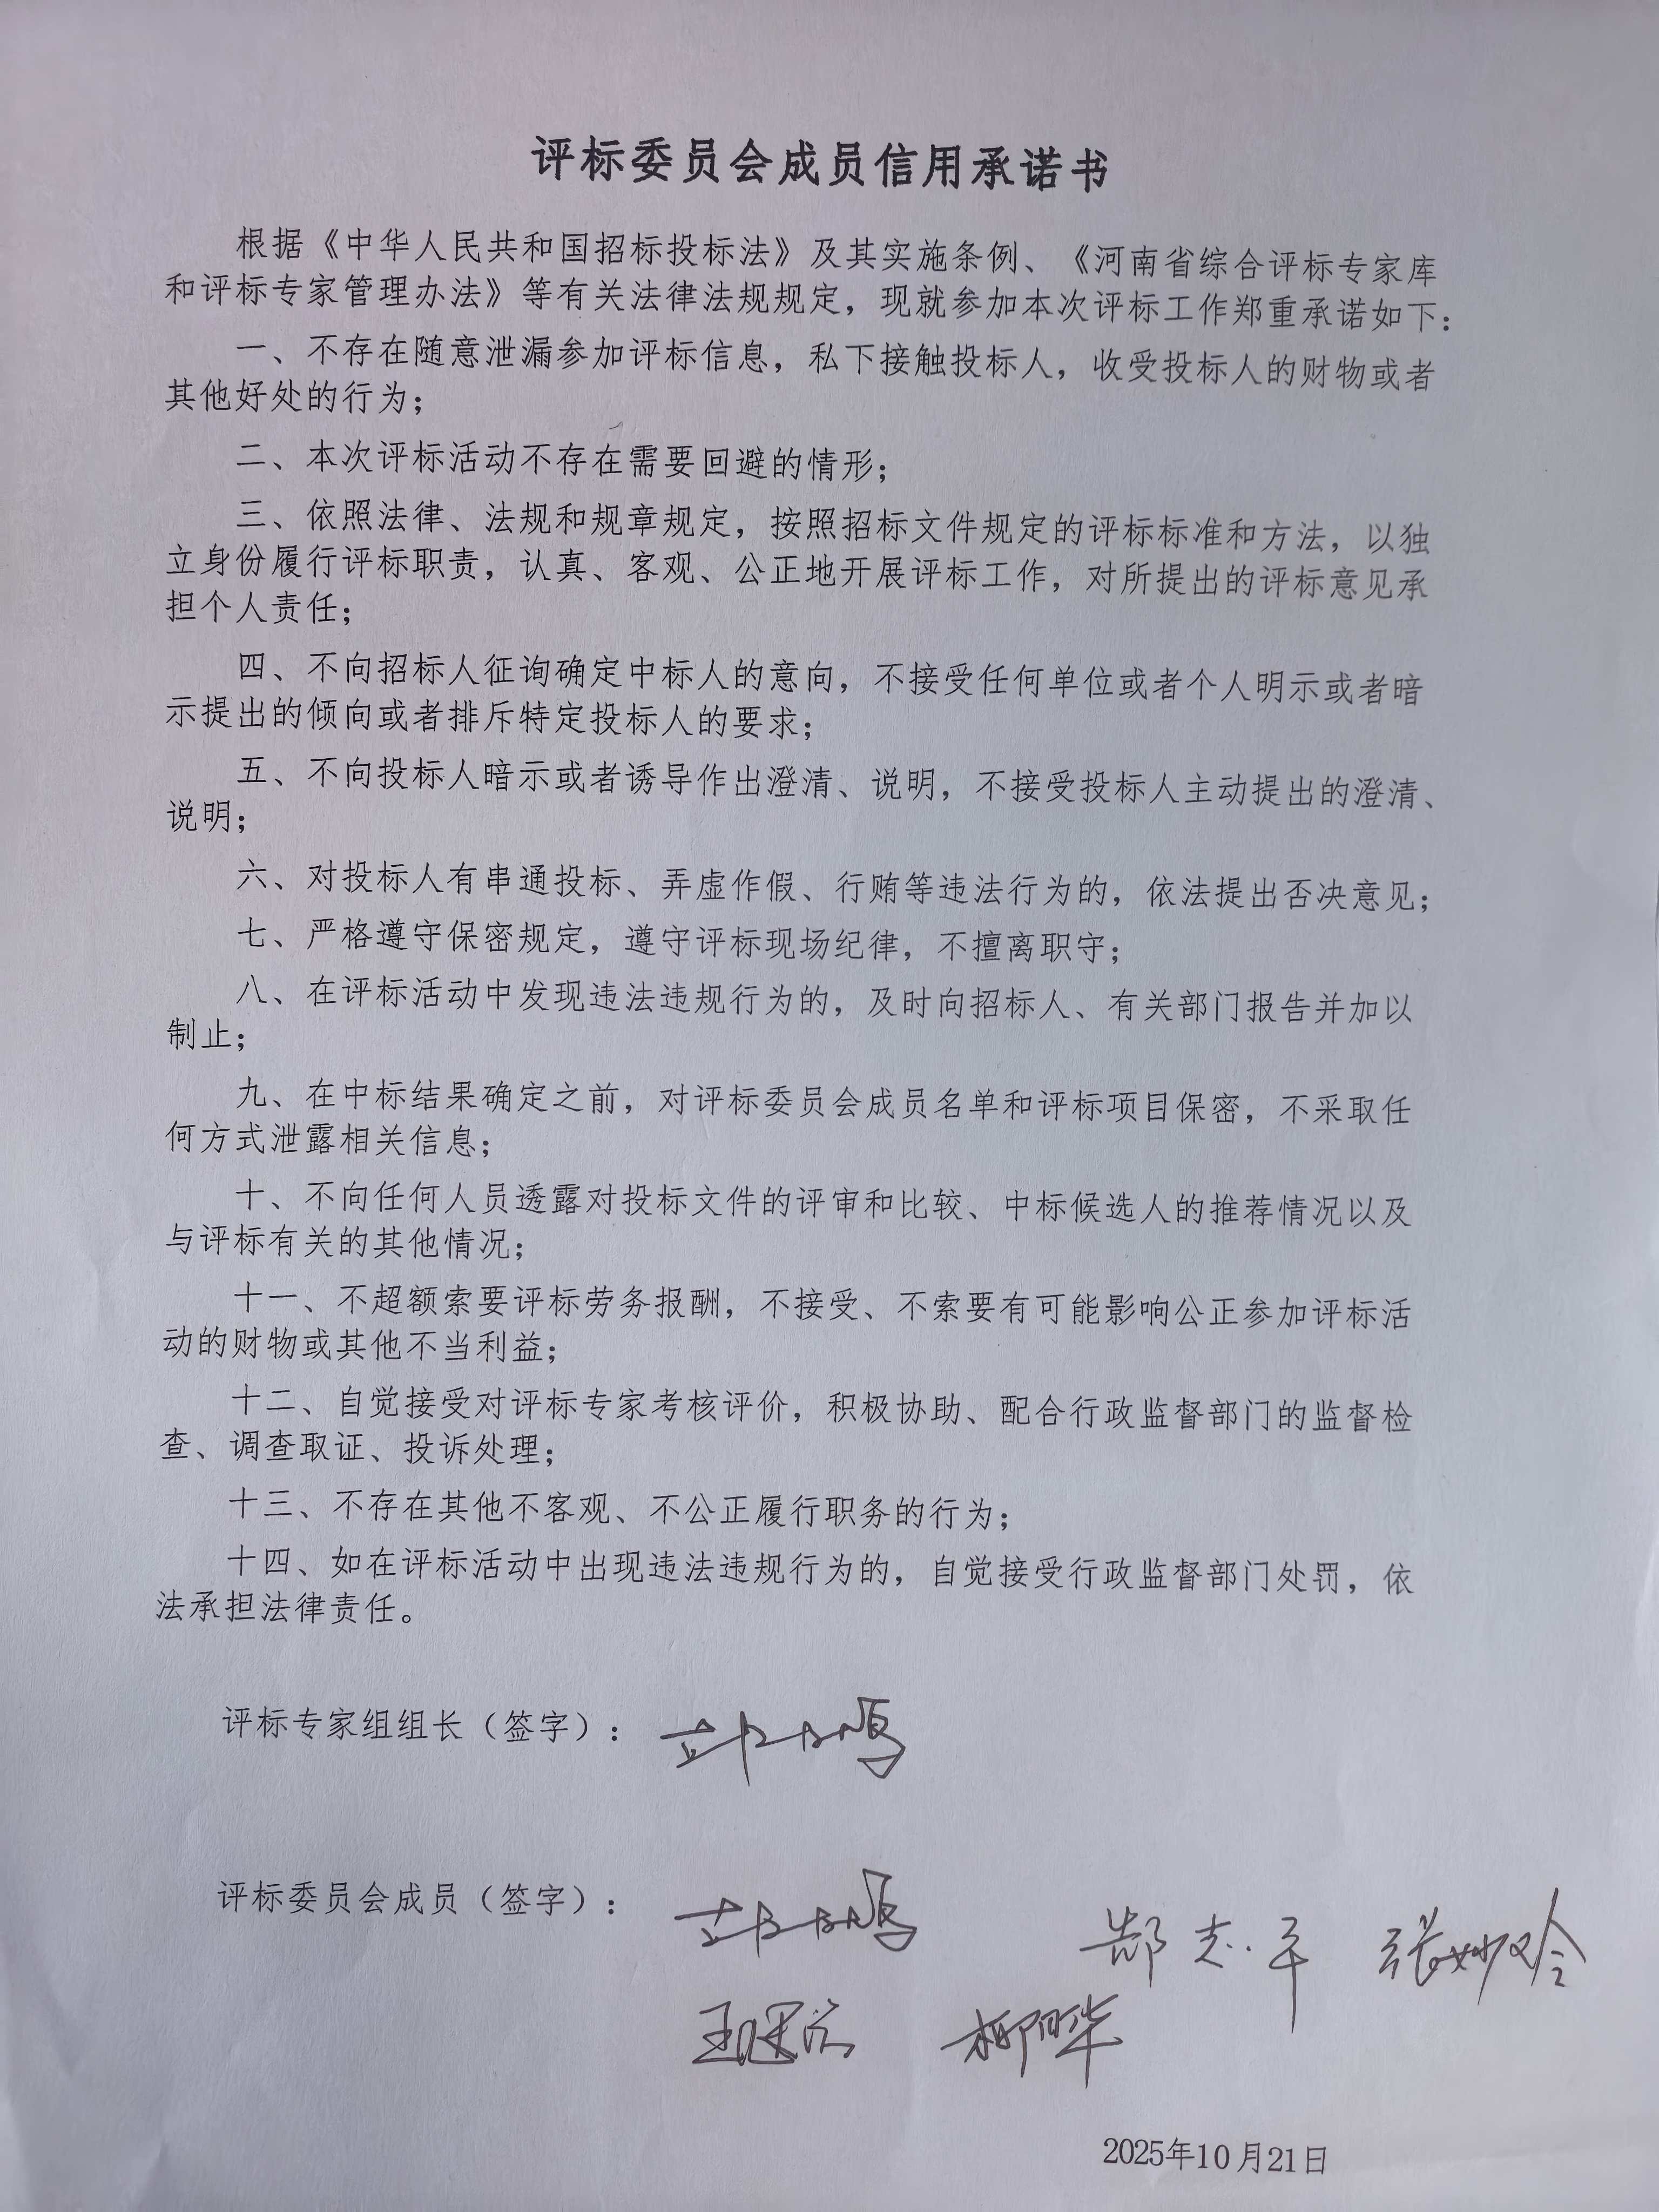 评标委员会成员信用承诺书
根据《中华人民共和国招标投标法》及其实施条例、《河南省综合评标专家库
和评标专家管理办法》等有关法律法规规定，现就参加本次评标工作郑重承诺如下：
一、不存在随意泄漏参加评标信息，私下接触投标人，收受投标人的财物或者
其他好处的行为；
二、本次评标活动不存在需要回避的情形；
三、依照法律、法规和规章规定，按照招标文件规定的评标标准和方法，以独
立身份履行评标职责，认真、客观、公正地开展评标工作，对所提出的评标意见承
担个人责任；
四、不向招标人征询确定中标人的意向，不接受任何单位或者个人明示或者暗
示提出的倾向或者排斥特定投标人的要求；
五、不向投标人暗示或者诱导作出澄清、说明，不接受投标人主动提出的澄清、
说明；
六、对投标人有串通投标、弄虚作假、行贿等违法行为的，依法提出否决意见；
七、严格遵守保密规定，遵守评标现场纪律，不擅离职守；
八、在评标活动中发现违法违规行为的，及时向招标人、有关部门报告并加以
制止；
九、在中标结果确定之前，对评标委员会成员名单和评标项目保密，不采取任
何方式泄露相关信息；
十、不向任何人员透露对投标文件的评审和比较、中标候选人的推荐情况以及
与评标有关的其他情况；
十一、不超额索要评标劳务报酬，不接受、不索要有可能影响公正参加评标活
动的财物或其他不当利益；
十二、自觉接受对评标专家考核评价，积极协助、配合行政监督部门的监督检
查、调查取证、投诉处理；
十三、不存在其他不客观、不公正履行职务的行为；
十四、如在评标活动中出现违法违规行为的，自觉接受行政监督部门处罚，依
法承担法律责任。
评标专家组组长（签字）：
评标委员会成员（签字）： 郜志平 张妙玲
柳晔
2025年10月21日